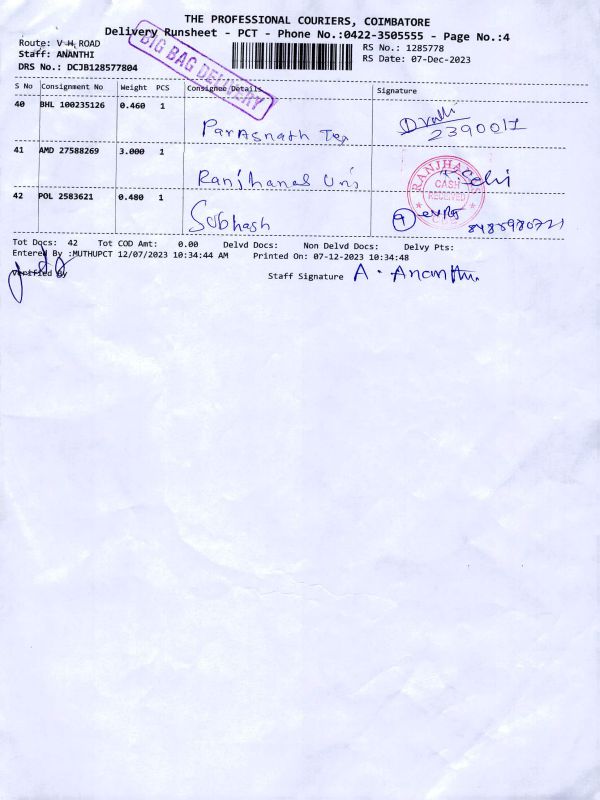 THE PROFESSIONAL COURIERS, COIMBATORE
Delivery Runsheet - PCT - Phone No.:0422-3505555 - Page No.:4
Route: V H ROAD
RS No.: 1285778
Staff: ANANTHI
RS Date: 07-Dec-2023
DRS No.: DCJB128577804
BIG BAG DELIVERY
S No Consignment No Weight PCS Consignee Details Signature
40 BHL 100235126 0.460 1
Parasnath Tex
2390011
41 AMD 27588269 3.000 1
Ranjhanas Uni
RANJHANAS
CASH
RECEIVED
42 POL 2583621 0.480 1
Subhash
Tot Docs: 42 Tot COD Amt: 0.00 Delvd Docs: Non Delvd Docs: Delvy Pts:
Entered By :MUTHUPCT 12/07/2023 10:34:44 AM Printed On: 07-12-2023 10:34:48
Verified By
Staff Signature A. Ananthi.